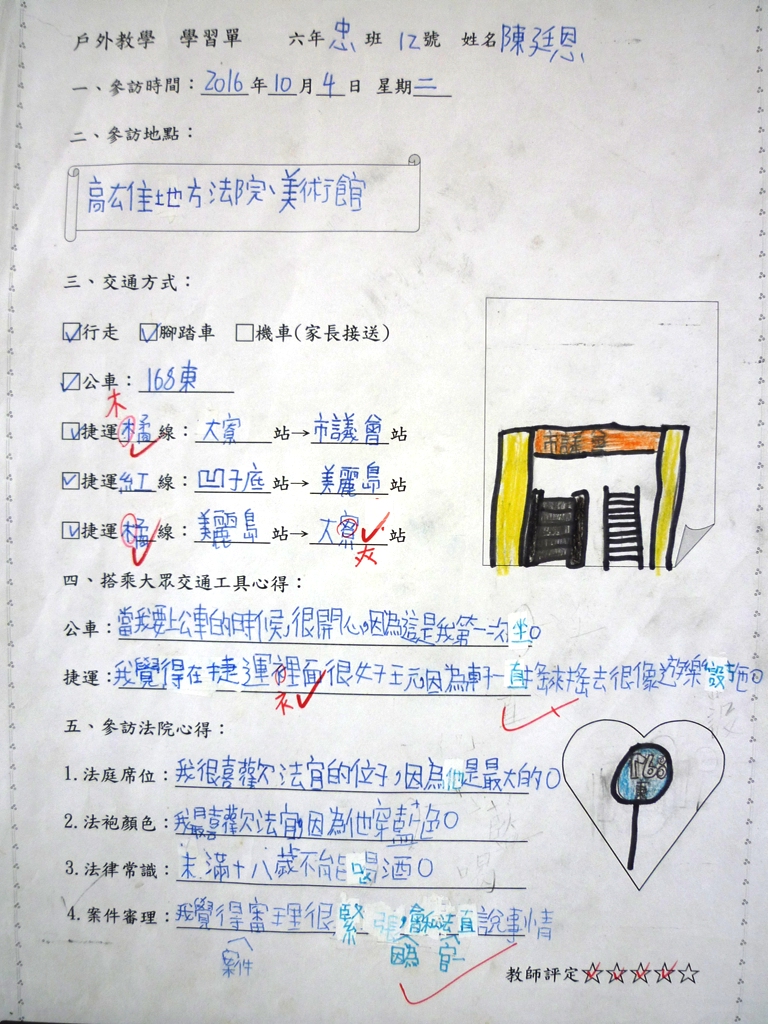 戶外教學 學習單 六年忠班 12號 姓名陳廷恩
一、參訪時間：2016年10月4日 星期二
二、參訪地點：
高雄地方法院、美術館
三、交通方式：
行走 腳踏車 機車(家長接送)
公車：168東
木
捷運橘線：大寮站→市議會站
捷運紅線：凹子底站→美麗島站
捷運橘線：美麗島站→大寮站
市議會
四、搭乘大眾交通工具心得：
公車：當我要上公車的時候，很開心，因為這是我第一次坐。
捷運：我覺得在捷運裡面很好玩因為車一直搖來搖去很像遊樂設施。
五、參訪法院心得：
1.法庭席位：我很喜歡法官的位子，因為他是最大的。
168東
2.法袍顏色：我最喜歡法官，因為他穿藍色。
3.法律常識：未滿十八歲不能喝酒。
4.案件審理：我覺得審理很緊張，會私法直說事情
案件 因為 官
教師評定☆☆☆☆☆